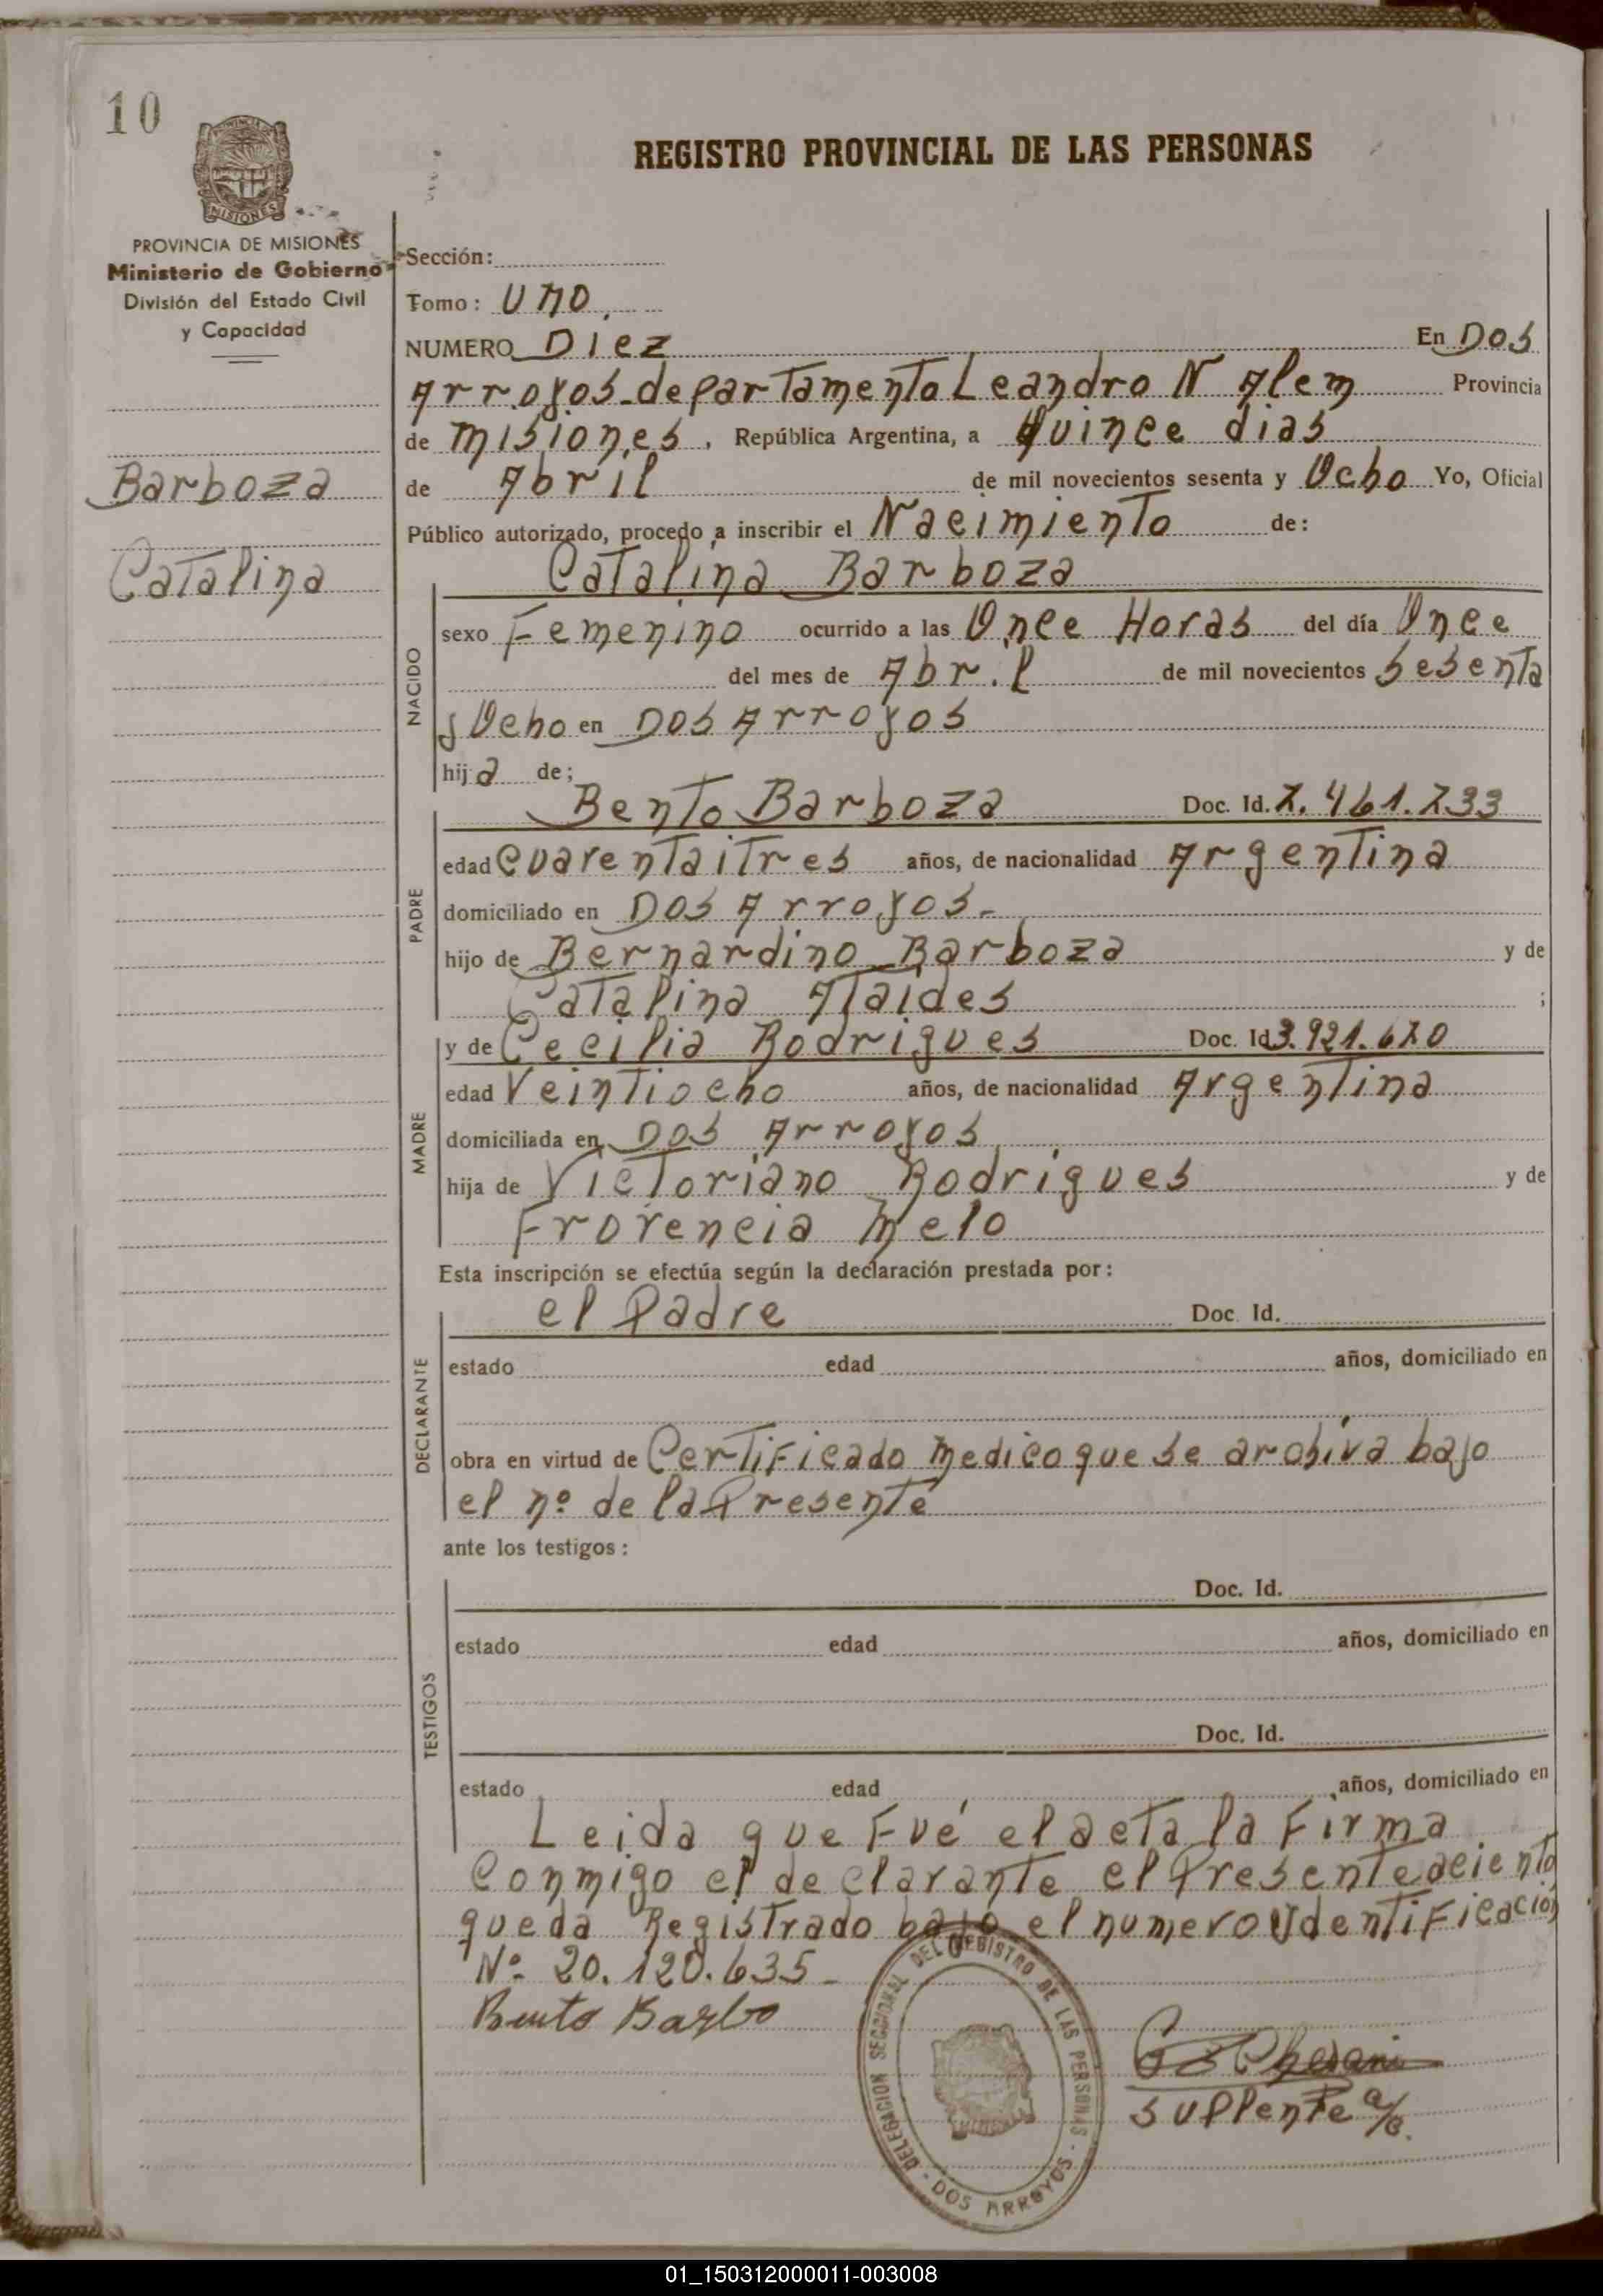 10
PROVINCIA DE MISIONES
Ministerio de Gobierno
División del Estado Civil
y Capacidad
Barboza
Catalina
REGISTRO PROVINCIAL DE LAS PERSONAS
Sección:
Tomo: UNO
NUMERO Diez En Dos
Arroyos departamento Leandro N Alem Provincia
de misiones, República Argentina, a Quince dias
de Abril de mil novecientos sesenta y Ocho Yo, Oficial
Público autorizado, procedo a inscribir el Nacimiento de:
Catalina Barboza
NACIDO
sexo Femenino ocurrido a las Once Horas del día Once
del mes de Abril de mil novecientos Sesenta
y Ocho en Dos Arroyos
hija de;
PADRE
Bento Barboza Doc. Id. 7.461.733
edad Cuarentaitres años, de nacionalidad Argentina
domiciliado en Dos Arroyos.-
hijo de Bernardino Barboza y de
Catalina Ataides ;
MADRE
y de Cecilia Rodrigues Doc. Id 3.921.670
edad Veintiocho años, de nacionalidad Argentina
domiciliada en Dos Arroyos
hija de Victoriano Rodrigues y de
Frorencia Melo
Esta inscripción se efectúa según la declaración prestada por:
DECLARANTE
el Padre Doc. Id.
estado edad años, domiciliado en
obra en virtud de Certificado medico que se archiva bajo
el nº de la Presente
ante los testigos:
TESTIGOS
Doc. Id.
estado edad años, domiciliado en
Doc. Id.
estado edad años, domiciliado en
Leida que Fué el acta la Firma
Conmigo el declarante el Presente aciento
queda Registrado bajo el numero Ydentificación
Nº 20.120.635-
Bento Barbo
DELEGACION SECCIONAL DEL REGISTRO DE LAS PERSONAS - DOS ARROYOS -
Suplente a/c.
01_150312000011-003008